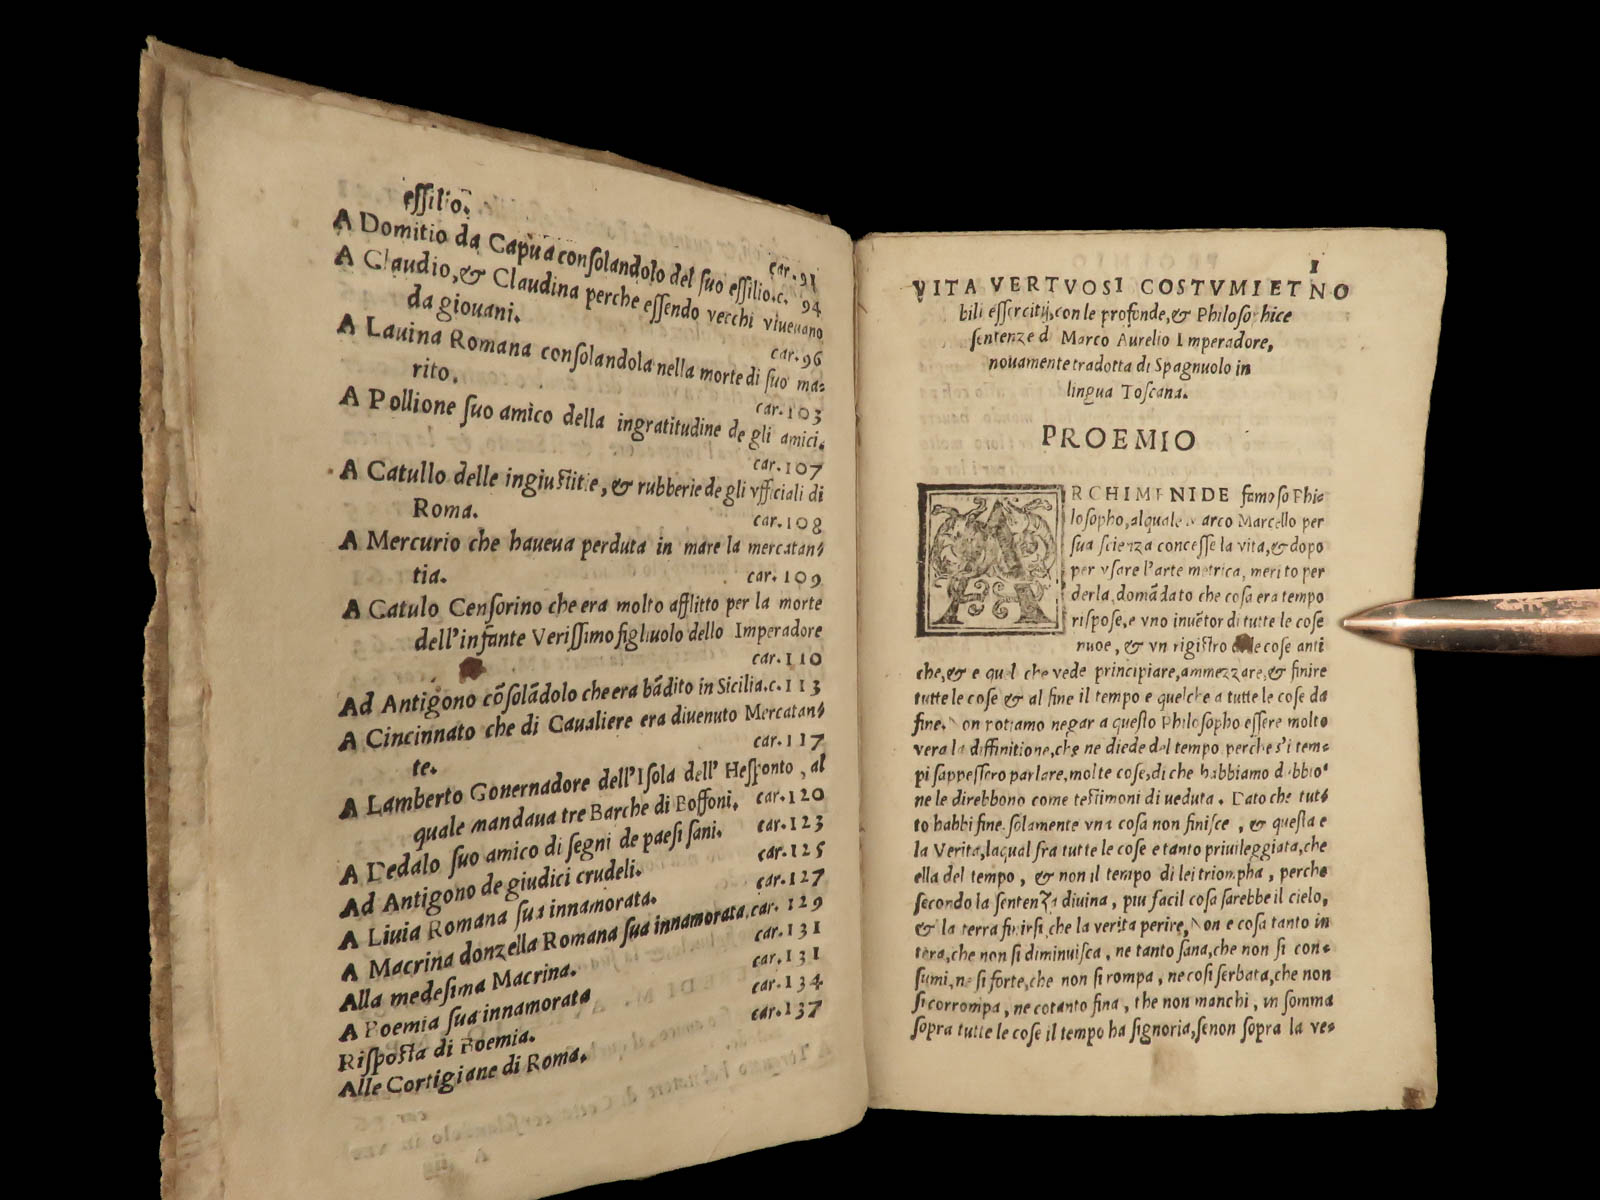 eſſilio.
car. 91
A Domitio da Capua conſolandolo del ſuo eſſilio.c. 94
A Claudio, & Claudina perche eſſendo vecchi viueuano
da giouani.
car. 96
A Lauina Romana conſolandola nella morte di ſuo ma-
rito.
car. 103
A Pollione ſuo amico della ingratitudine de gli amici.
car. 107
A Catullo delle ingiuſtitie, & rubberie de gli vfficiali di
Roma.
car. 108
A Mercurio che haueua perduta in mare la mercatan-
tia.
car. 109
A Catulo Cenſorino che era molto afflitto per la morte
dell'infante Veriſſimo figliuolo dello Imperadore
car. 110
Ad Antigono cõſolãdolo che era bãdito in Sicilia.c. 113
A Cincinnato che di Caualiere era diuenuto Mercatan-
te.
car. 117
A Lamberto Gonernadore dell'Iſola dell' Heſponto, al
quale mandaua tre Barche di Boffoni.
car. 120
A Dedalo ſuo amico di ſegni de paeſi ſani.
car. 123
Ad Antigono de giudici crudeli.
car. 125
A Liuia Romana ſua innamorata.
car. 127
A Macrina donzella Romana ſua innamorata.
car. 129
Alla medeſima Macrina.
car. 131
A Boemia ſua innamorata
car. 131
Riſpoſta di Boemia.
car. 134
Alle Cortigiane di Roma.
car. 137
1
VITA VERTVOSI COSTVMI ET NO
bili eſſercitij, con le profonde, & Philoſophice
ſentenze d Marco Aurelio Imperadore,
nouamente tradotta di Spagnuolo in
lingua Toſcana.
PROEMIO
ARCHIMENIDE famoſo Phi-
loſopho, al quale Marco Marcello per
ſua ſcienza conceſſe la vita, & dopo
per vſare l'arte metrica, merito per
derla, domãdato che coſa era tempo
riſpoſe, e vno inuẽtor di tutte le coſe
nuoe, & vn rigiſtro delle coſe anti
che, & e quel che vede principiare, ammezzare, & finire
tutte le coſe & al fine il tempo e quel che a tutte le coſe da
fine. Non potiamo negar a queſto Philoſopho eſſere molto
vera la diffinitione, che ne diede del tempo perche s'i tem-
pi ſappeſſero parlare, molte coſe, di che habbiamo dubbio
ne le direbbono come teſtimoni di ueduta. Dato che tut-
to habbi fine ſolamente vna coſa non finiſce, & queſta e
la Verita, laqual fra tutte le coſe e tanto priuileggiata, che
ella del tempo, & non il tempo di lei triompha, perche
ſecondo la ſentenza diuina, piu facil coſa ſarebbe il cielo,
& la terra finirſi, che la verita perire, Non e coſa tanto in
tera, che non ſi diminuiſca, ne tanto ſana, che non ſi con-
ſumi, ne ſi forte, che non ſi rompa, ne coſi ſerbata, che non
ſi corrompa, ne cotanto fina, che non manchi, in ſomma
ſopra tutte le coſe il tempo ha ſignoria, ſenon ſopra la ve-